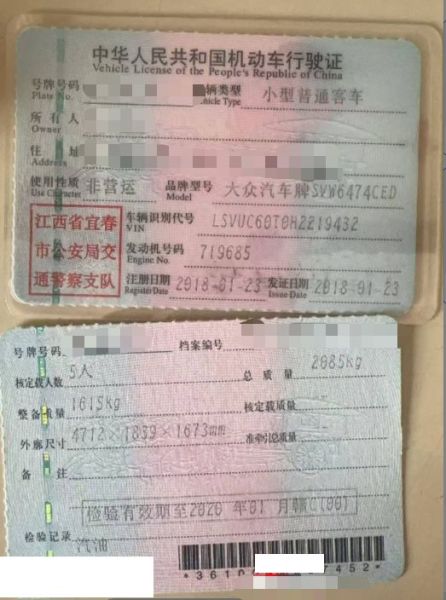 中华人民共和国机动车行驶证
Vehicle License of the People's Republic of China
号牌号码 辆类型 小型普通客车
Plate No. ehicle Type
所有人
Owner
住址
Address
使用性质 非营运 品牌型号 大众汽车牌SVW6474CED
Use Character Model
江西省宜春
市公安局交
通警察支队
车辆识别代号 LSVUC60T0H2219432
VIN
发动机号码 719685
Engine No.
注册日期 2018-01-23 发证日期 2018-01-23
Register Date Issue Date
号牌号码 档案编号
核定载人数 5人 总质量 2085kg
整备质量 1615kg 核定载质量
外廓尺寸 4712×1839×1673mm 准牵引总质量
备注
检验有效期至2020年01月赣C(00)
检验记录
汽油
*361 7452*